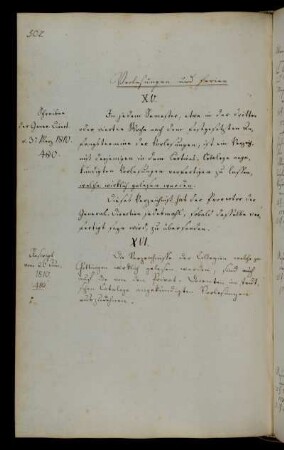 502.
Vorlesungen und Ferien
XV.
Schreiben
der Gener. Direct.
v. 3t März 1810.
480.
In jedem Semester, etwa in der dritten
oder vierten Woche nach dem festgesetzten An-
fangstermine der Vorlesungen, ist ein Verzeich-
niß derjenigen in dem Lections-Cataloge ange-
kündigten Vorlesungen verfertigen zu lassen,
welche wirklich gelesen werden.
Dieses Verzeichniß hat der Prorector der
General-Direction jedesmahl, sobald dasselbe ver-
fertigt seyn wird, zu übersenden.
XVI.
Rescript
vom
1810.
In Verzeichnisse der Collegien welche zu
Göttingen wirklich gelesen werden, sind auch
auch die von den Privat-Docenten im deut-
schen Cataloge angekündigten Vorlesungen
aufzunehmen.